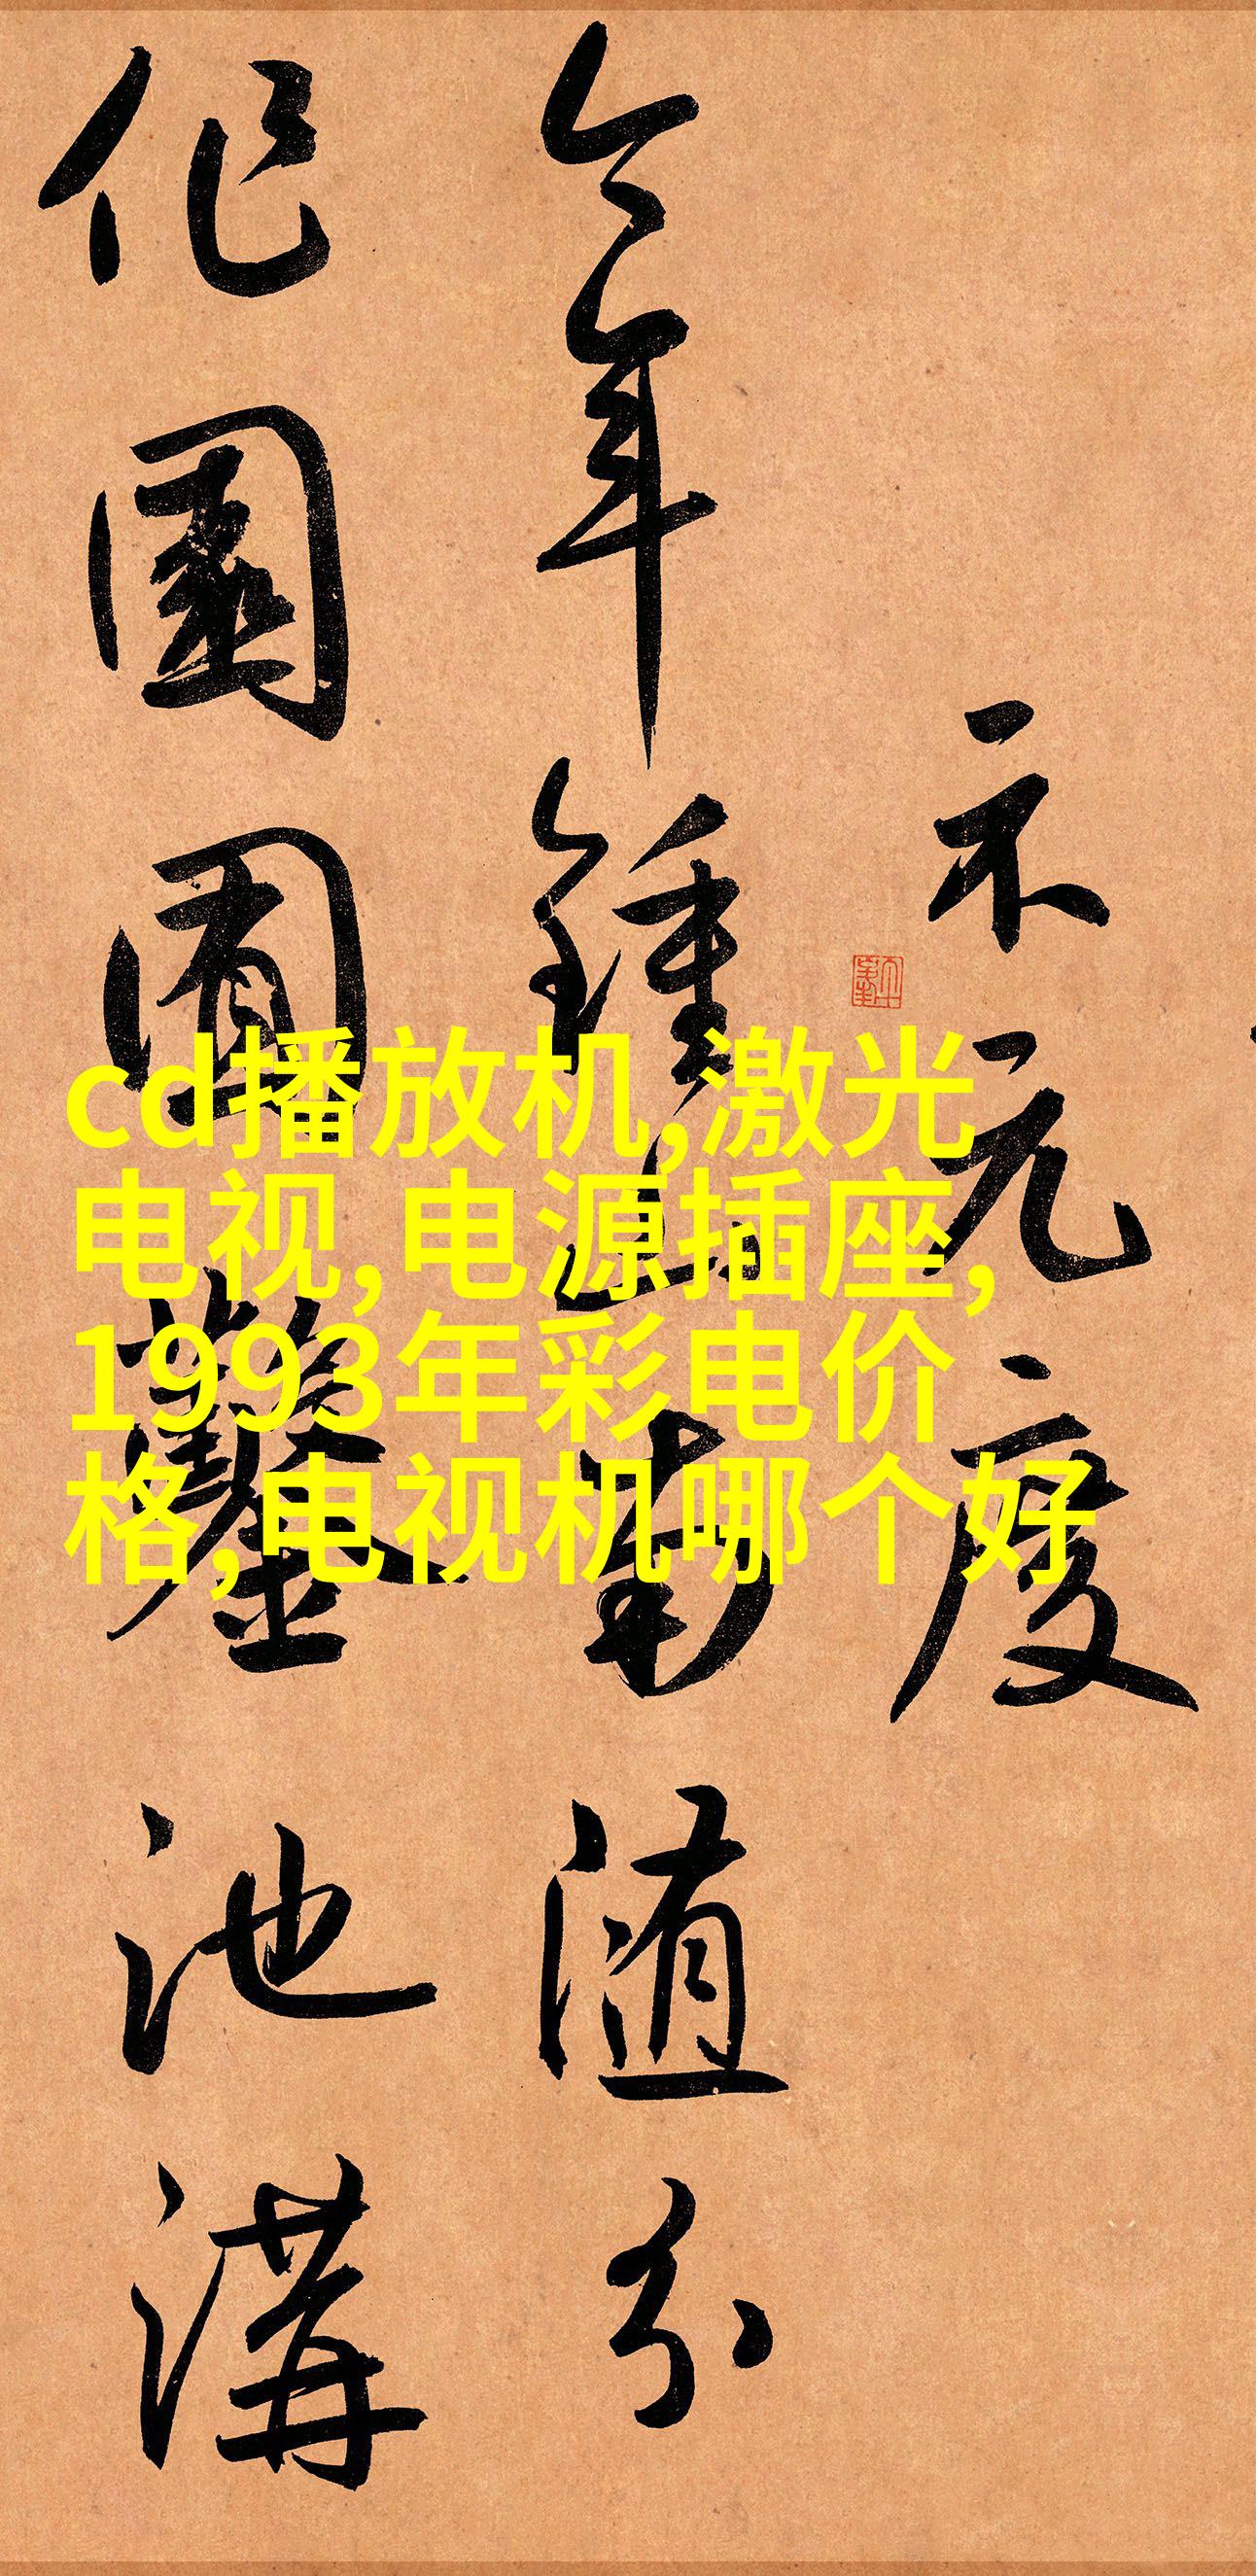 不元度
今年鍾山南随分
作園囿鑿池溝
cd播放机,激光
电视,电源插座,
1993年彩电价
格,电视机哪个好